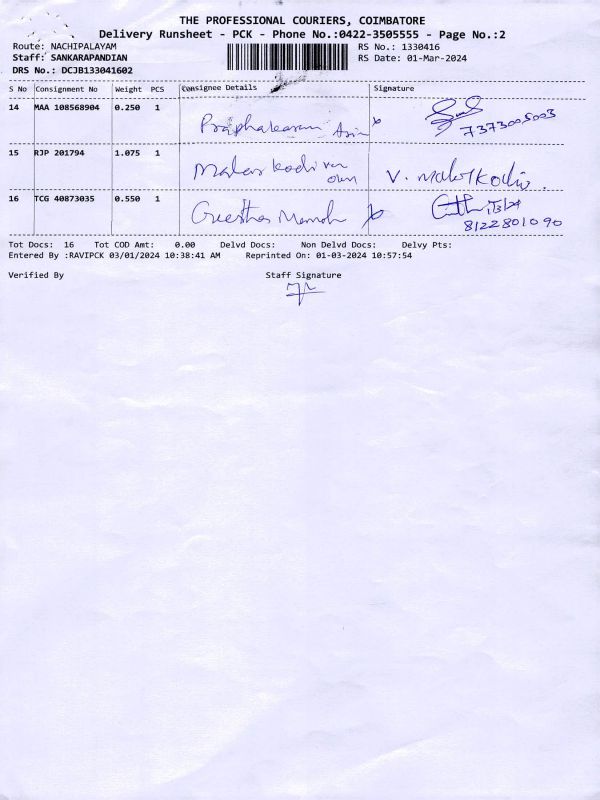 THE PROFESSIONAL COURIERS, COIMBATORE
Delivery Runsheet - PCK - Phone No.:0422-3505555 - Page No.:2
Route: NACHIPALAYAM
RS No.: 1330416
Staff: SANKARAPANDIAN
RS Date: 01-Mar-2024
DRS No.: DCJB133041602
S No Consignment No Weight PCS Consignee Details Signature
14 MAA 108568904 0.250 1
7373005003
15 RJP 201794 1.075 1
V. Malarkodi.
16 TCG 40873035 0.550 1
8122801090
Tot Docs: 16 Tot COD Amt: 0.00 Delvd Docs: Non Delvd Docs: Delvy Pts:
Entered By :RAVIPCK 03/01/2024 10:38:41 AM Reprinted On: 01-03-2024 10:57:54
Verified By Staff Signature